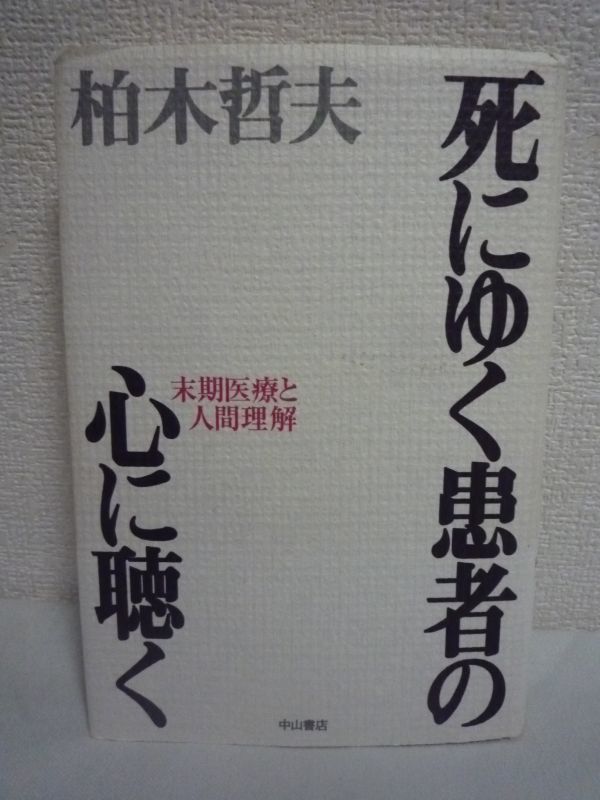 柏木哲夫
死にゆく患者の
心に聴く
末期医療と
人間理解
中山書店